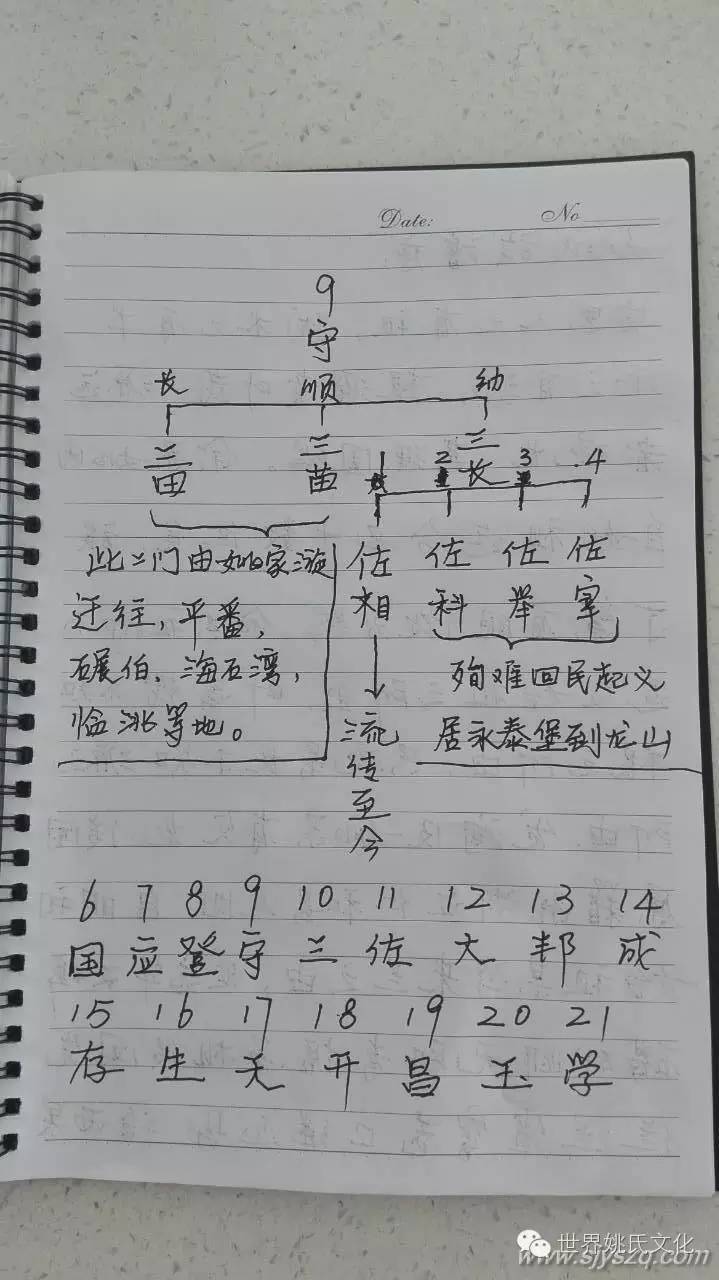 Date: No
9
守
长 顺 幼
兰 兰 兰
田 苗 长
1 2 3 4
此二门由姚家漩
迁往，平番，
碾伯、海石湾，
临洮等地。
佐相
佐科
佐举
佐宰
流传至今
殉难回民起义
居永泰堡到龙山
6 7 8 9 10 11 12 13 14
国 应 登 守 兰 佐 大 邦 成
15 16 17 18 19 20 21
存 生 无 开 昌 玉 学
世界姚氏文化
www.sjyszq.com